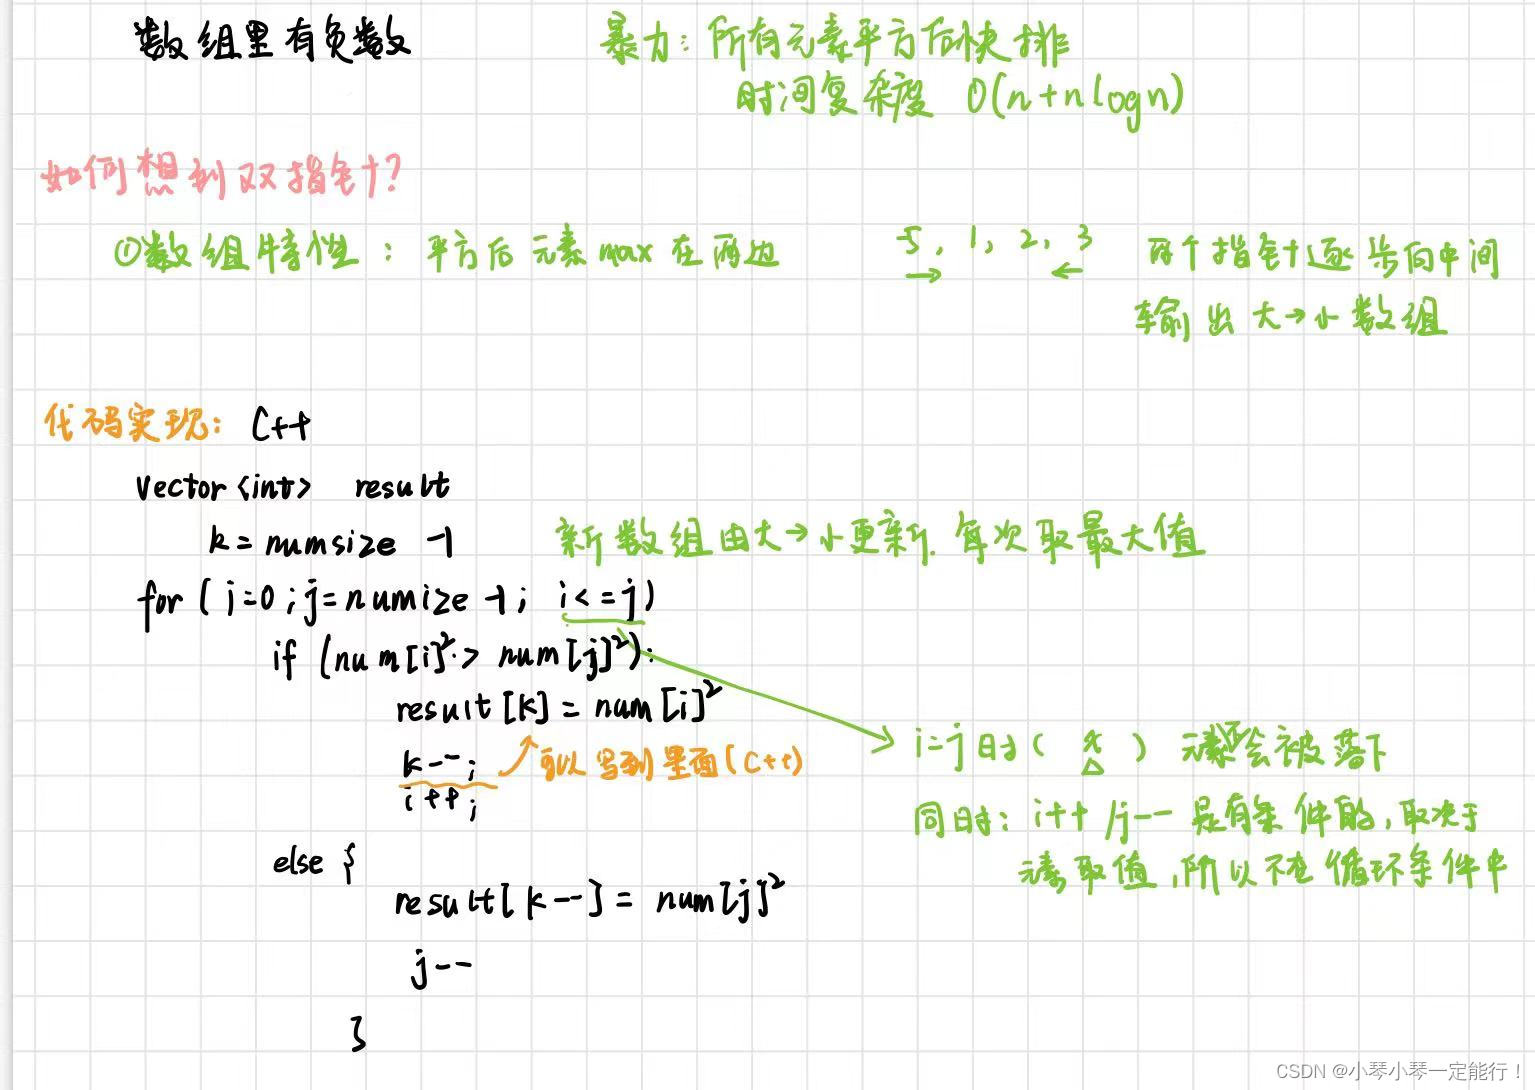 数组里有负数
暴力：所有元素平方后快排
时间复杂度 O(n+nlogn)
如何想到双指针？
①数组特性：平方后元素max在两边
-5, 1, 2, 3
两个指针逐步向中间
输出大→小数组
代码实现：C++
vector<int> result
k = numsize -1
新数组由大→小更新，每次取最大值
for ( i=0 ; j=numize -1; i<=j)
if (num[i]²> num[j]²):
result[k] = num[i]²
k--;
可以写到里面(C++)
i++;
i=j时( ) 元素不会被落下
同时：i++ /j-- 是有条件的,取决于
元素取值,所以不在循环条件中
else {
result[k--] = num[j]²
j--
}
CSDN @小琴小琴一定能行！